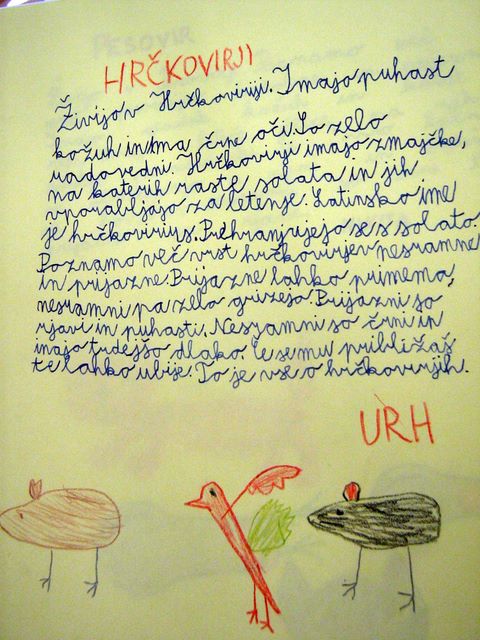 HRČKOVIRJI
Živijo v Hrčkoviriji. Imajo puhast
kožuh in ima črne oči. So zelo
radovedni. Hrčkovirji imajo zmajčke,
na katerih raste solata in jih
uporabljajo za letenje. Latinsko ime
je hrčkovirius. Prehranjujejo se s solato.
Poznamo več vrst hrčkovirjev nesramne
in prijazne. Prijazne lahko primema,
nesramni pa zelo grizejo. Prijazni so
rjavi in puhasti. Nesramni so črni in
imajo trdejšo dlako. Če se mu približaš
te lahko ubije. To je vse o hrčkovirjih.
URH